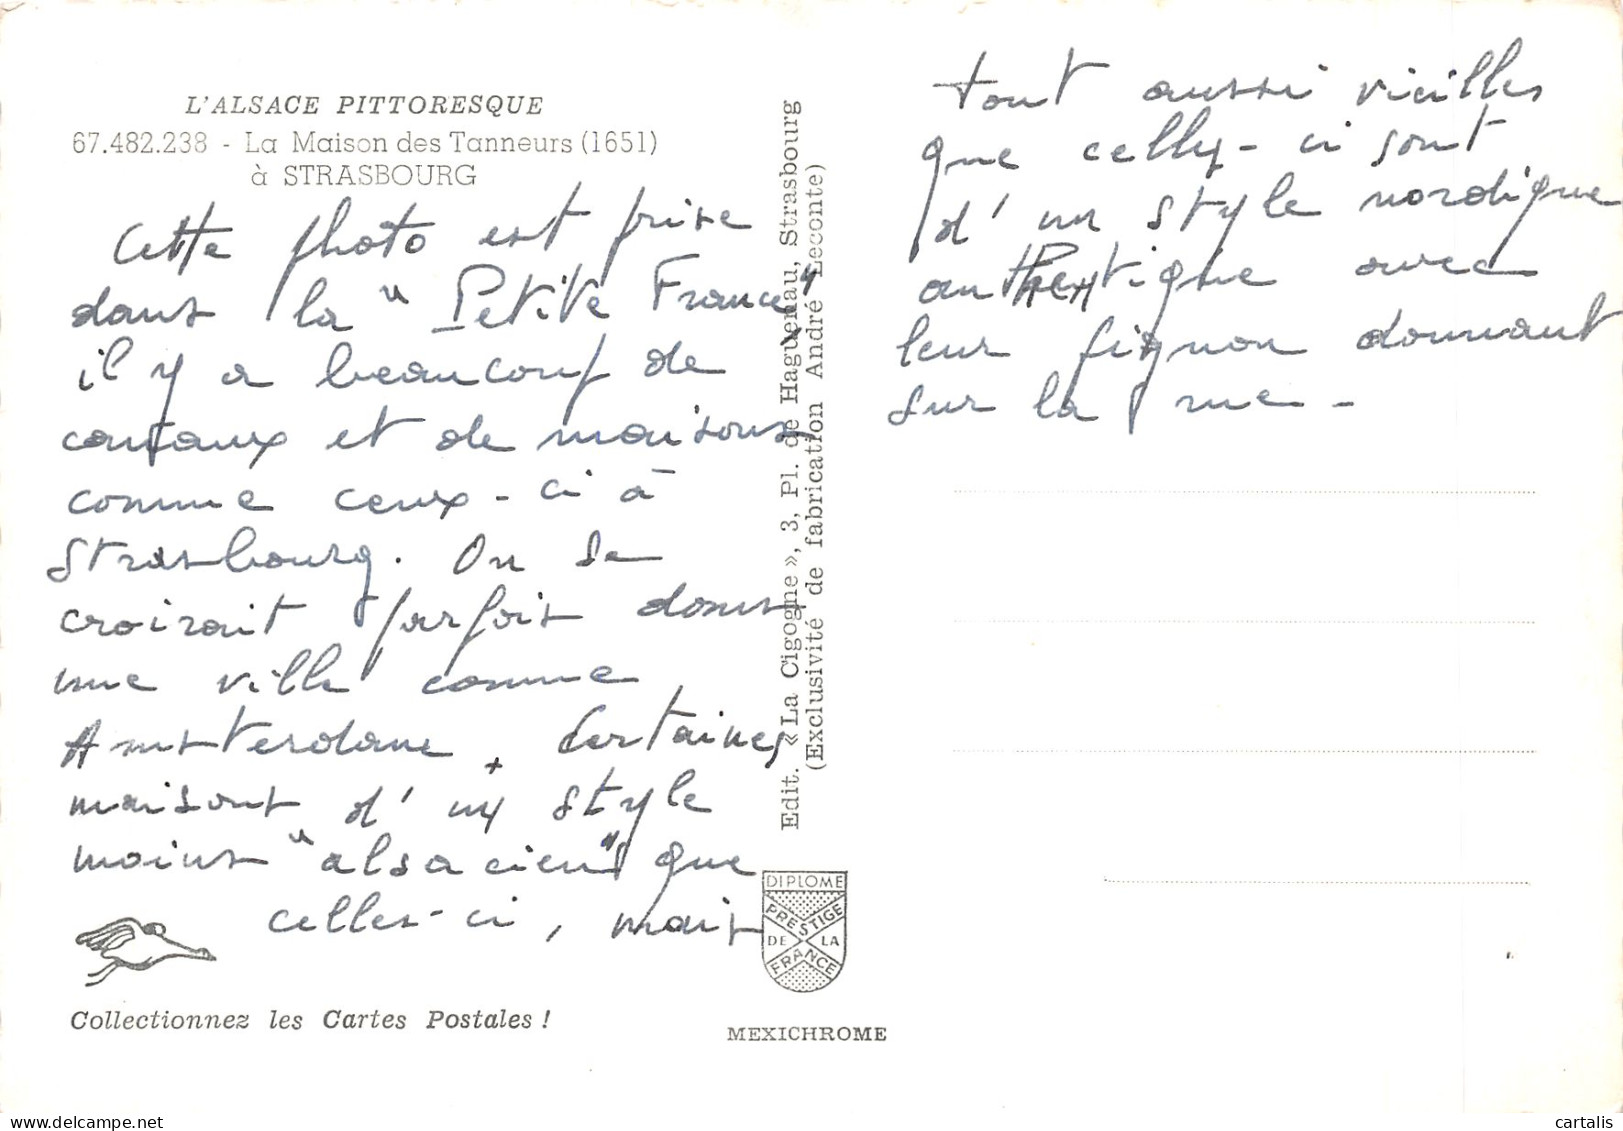 L'ALSACE PITTORESQUE
67.482.238 - La Maison des Tanneurs (1651)
à STRASBOURG
Cette photo est prise
dans la "Petite France"
il y a beaucoup de
canaux et de maisons
comme ceux-ci à
Strasbourg. On se
croirait parfois dans
une ville comme
Amsterdam. Certaines
maisons d'un style
moins "alsacien" que
celles-ci, mais
Collectionnez les Cartes Postales !
Edit. «La Cigogne», 3, Pl. de Haguenau, Strasbourg
(Exclusivité de fabrication André Leconte)
DIPLOME
PRESTIGE
DE LA
FRANCE
MEXICHROME
tout aussi vieilles
que celles-ci sont
d'un style nordique
authentique avec
leur pignon donnant
sur la rue-
cartalis - delcampe.net